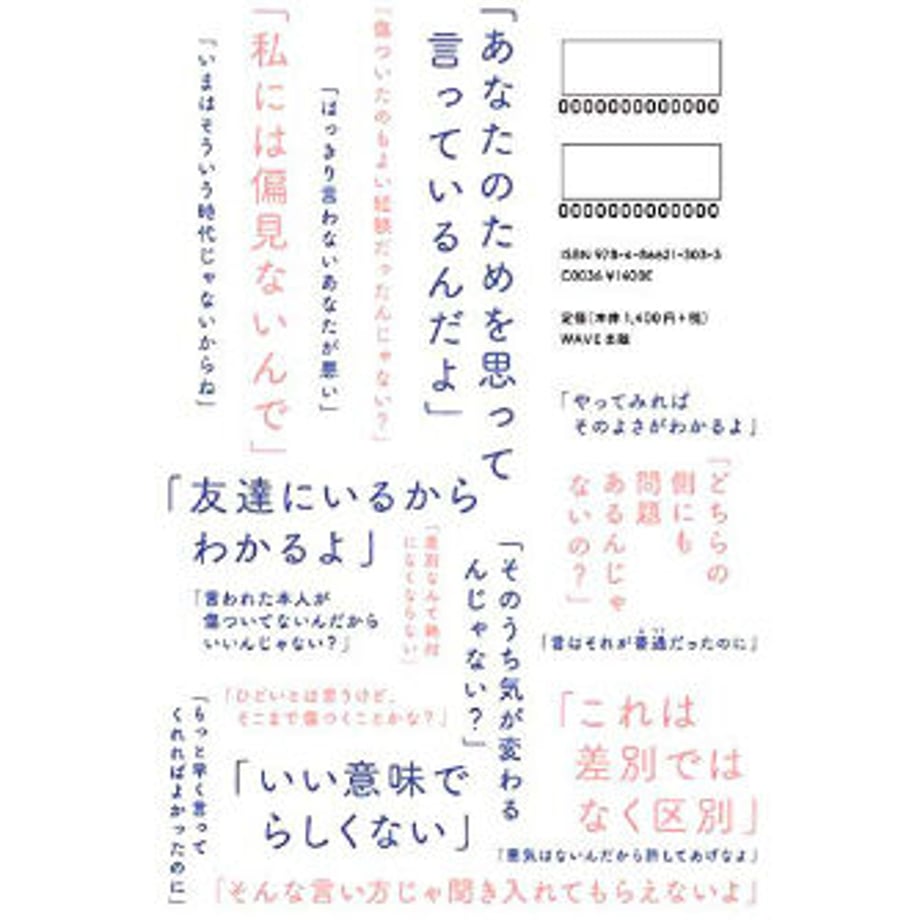 0000000000000
0000000000000
ISBN 978-4-86621-303-3
C0036 ¥1400E
定価(本体1,400円+税)
WAVE出版
「あなたのためを思って
言っているんだよ」
「傷ついたのもよい経験だったんじゃない?」
「はっきり言わないあなたが悪い」
「私には偏見ないんで」
「いまはそういう時代じゃないからね」
「やってみれば
そのよさがわかるよ」
「どちらの
側にも
問題
あるんじゃ
ないの?」
「友達にいるから
わかるよ」
「差別なんて絶対
になくならない」
「そのうち気が変わる
んじゃない?」
「言われた本人が
傷ついてないんだから
いいんじゃない?」
「昔はそれが普通だったのに」
「ひどいとは思うけど、
そこまで傷つくことかな?」
「もっと早く言って
くれればよかったのに」
「いい意味で
らしくない」
「これは
差別では
なく区別」
「悪気はないんだから許してあげなよ」
「そんな言い方じゃ聞き入れてもらえないよ」